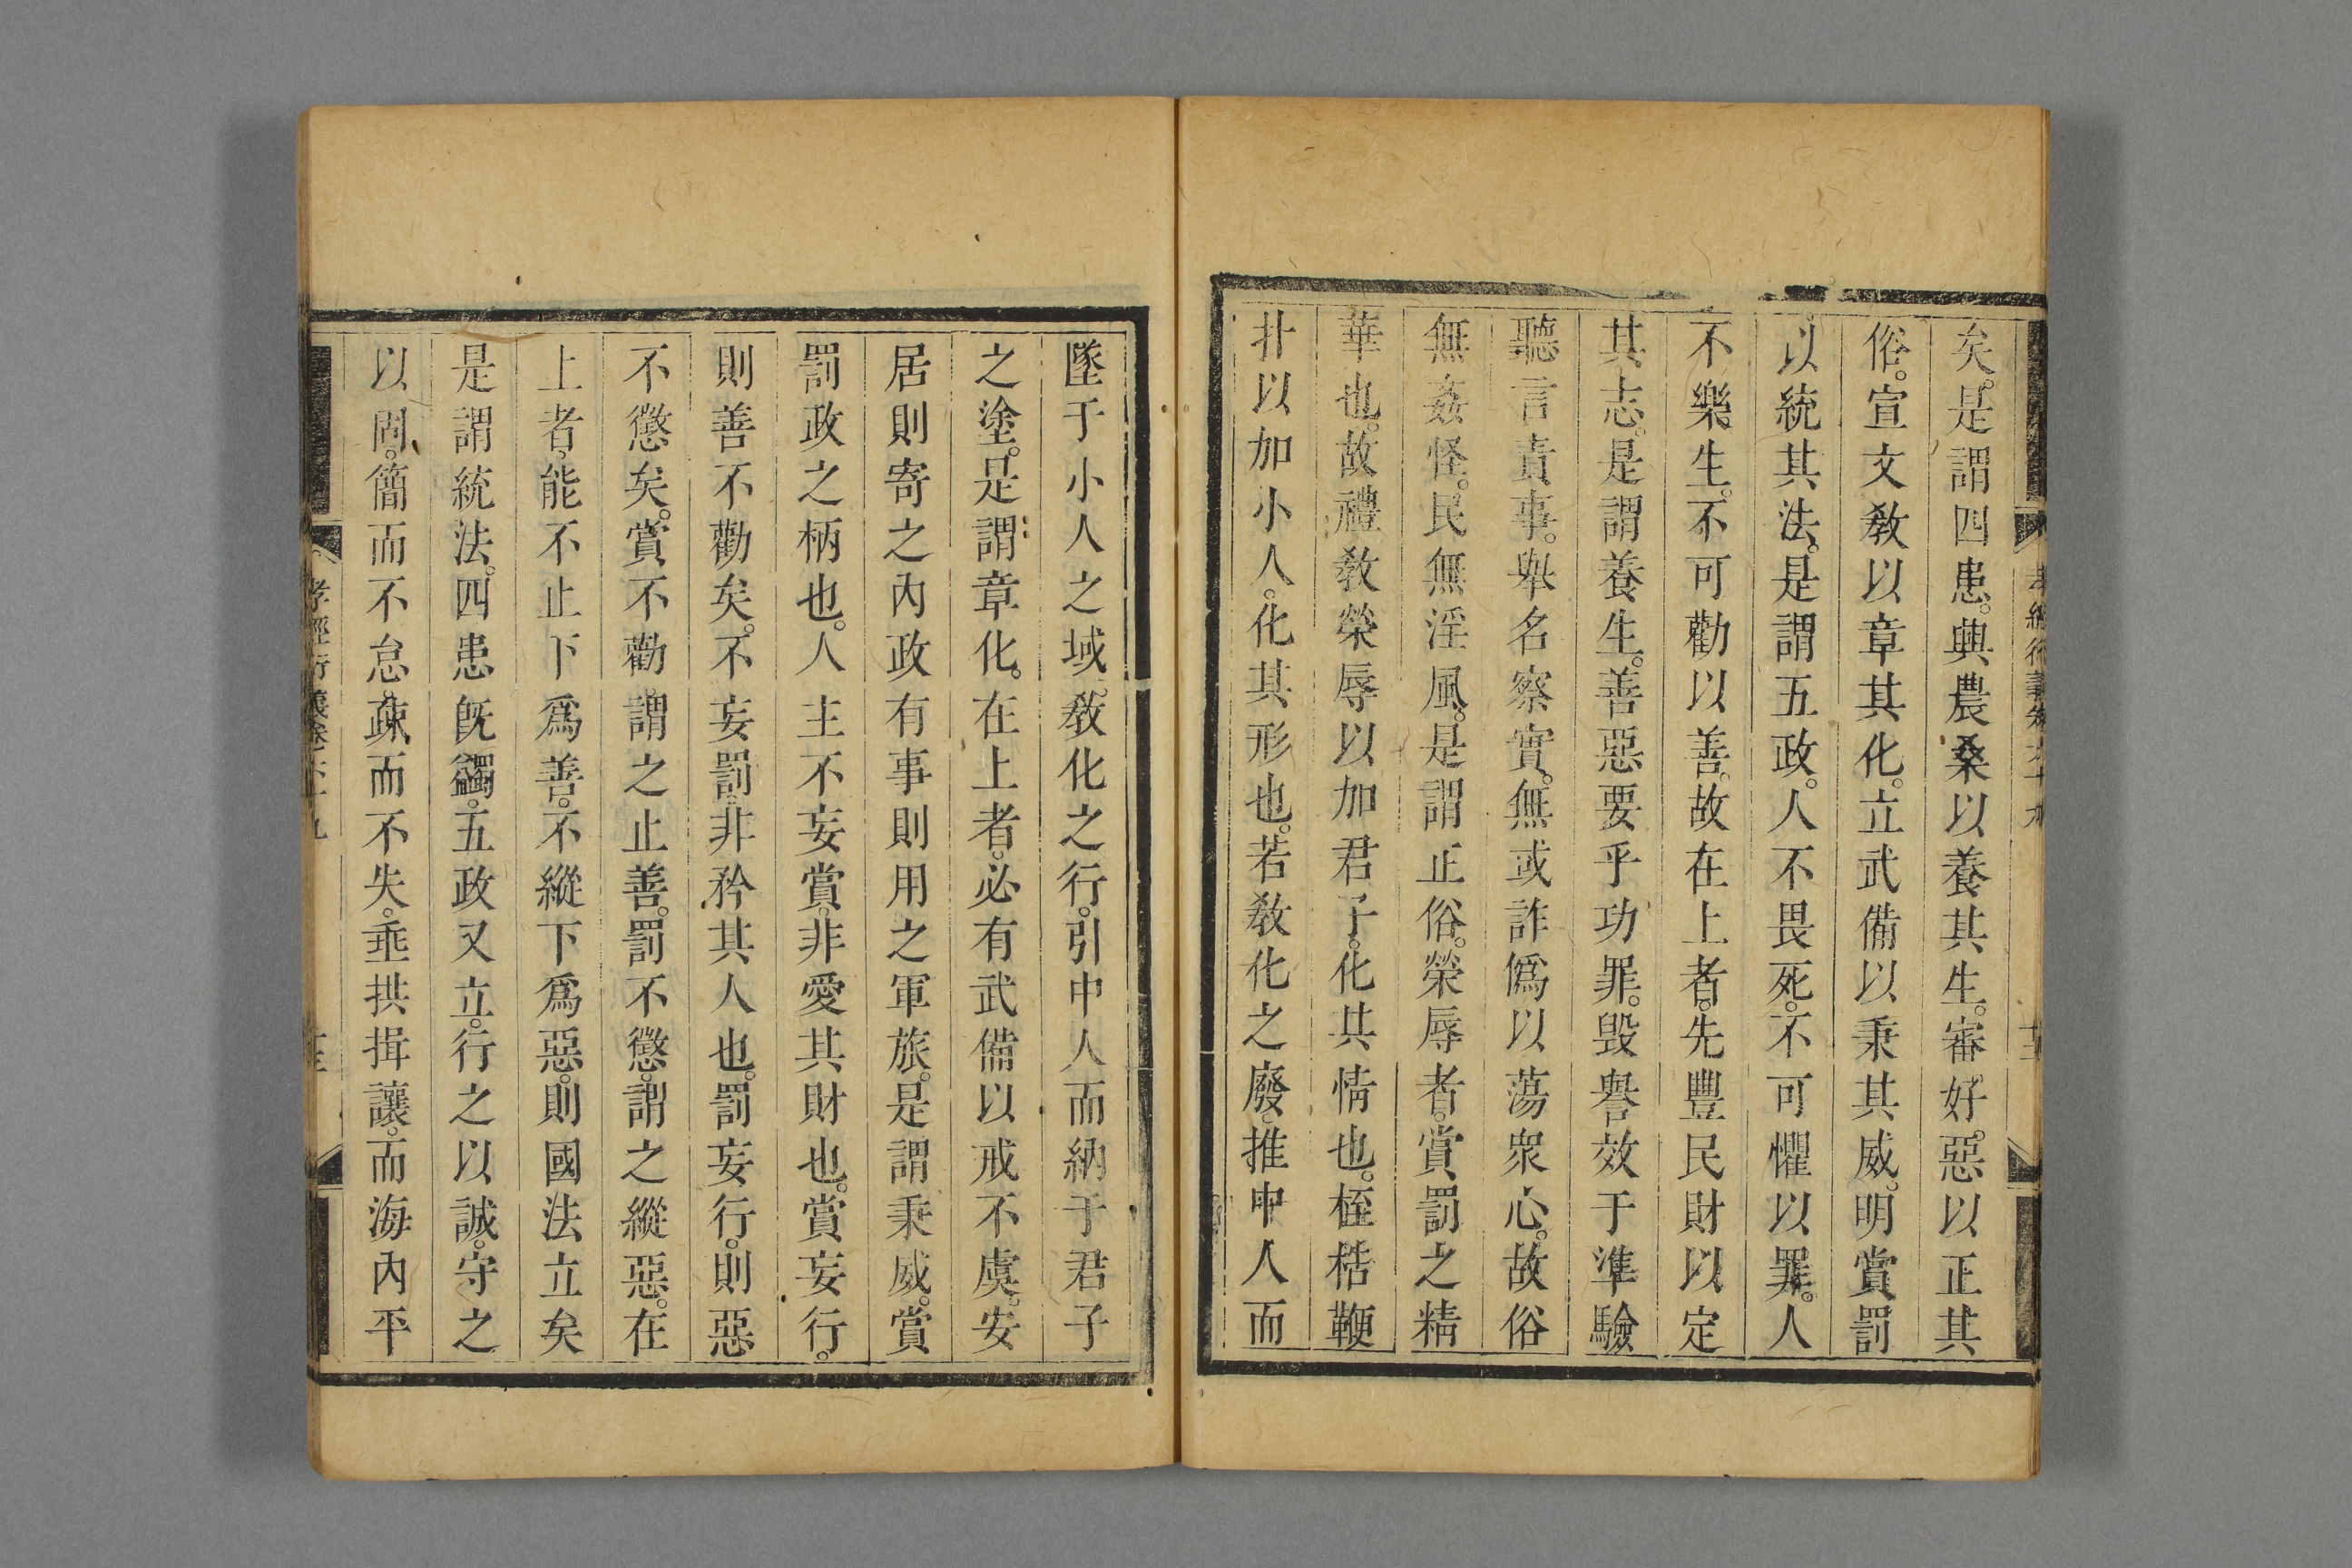 矣。是謂四患。興農桑以養其生。審好惡以正其
俗。宣文敎以章其化。立武備以秉其威。明賞罰
以統其法。是謂五政。人不畏死。不可懼以罪。人
不樂生。不可勸以善。故在上者。先豐民財以定
其志。是謂養生。善惡要乎功罪。毀譽效于準驗
聽言責事。舉名察實。無或詐僞以蕩衆心。故俗
無姦怪。民無淫風。是謂正俗。榮辱者。賞罰之精
華也。故禮敎榮辱以加君子。化其情也。桎梏鞭
扑以加小人。化其形也。若敎化之廢。推中人而
墜于小人之域。敎化之行。引中人而納于君子
之塗。是謂章化。在上者。必有武備以戒不虞。安
居則寄之內政有事則用之軍旅。是謂秉威。賞
罰政之柄也。人主不妄賞。非愛其財也。賞妄行。
則善不勸矣。不妄罰。非矜其人也。罰妄行。則惡
不懲矣。賞不勸。謂之止善。罰不懲。謂之縱惡。在
上者。能不止下爲善。不縱下爲惡。則國法立矣
是謂統法。四患旣蠲。五政又立。行之以誠。守之
以固。簡而不怠。疎而不失。垂拱揖讓。而海內平
孝經衍義卷六十九